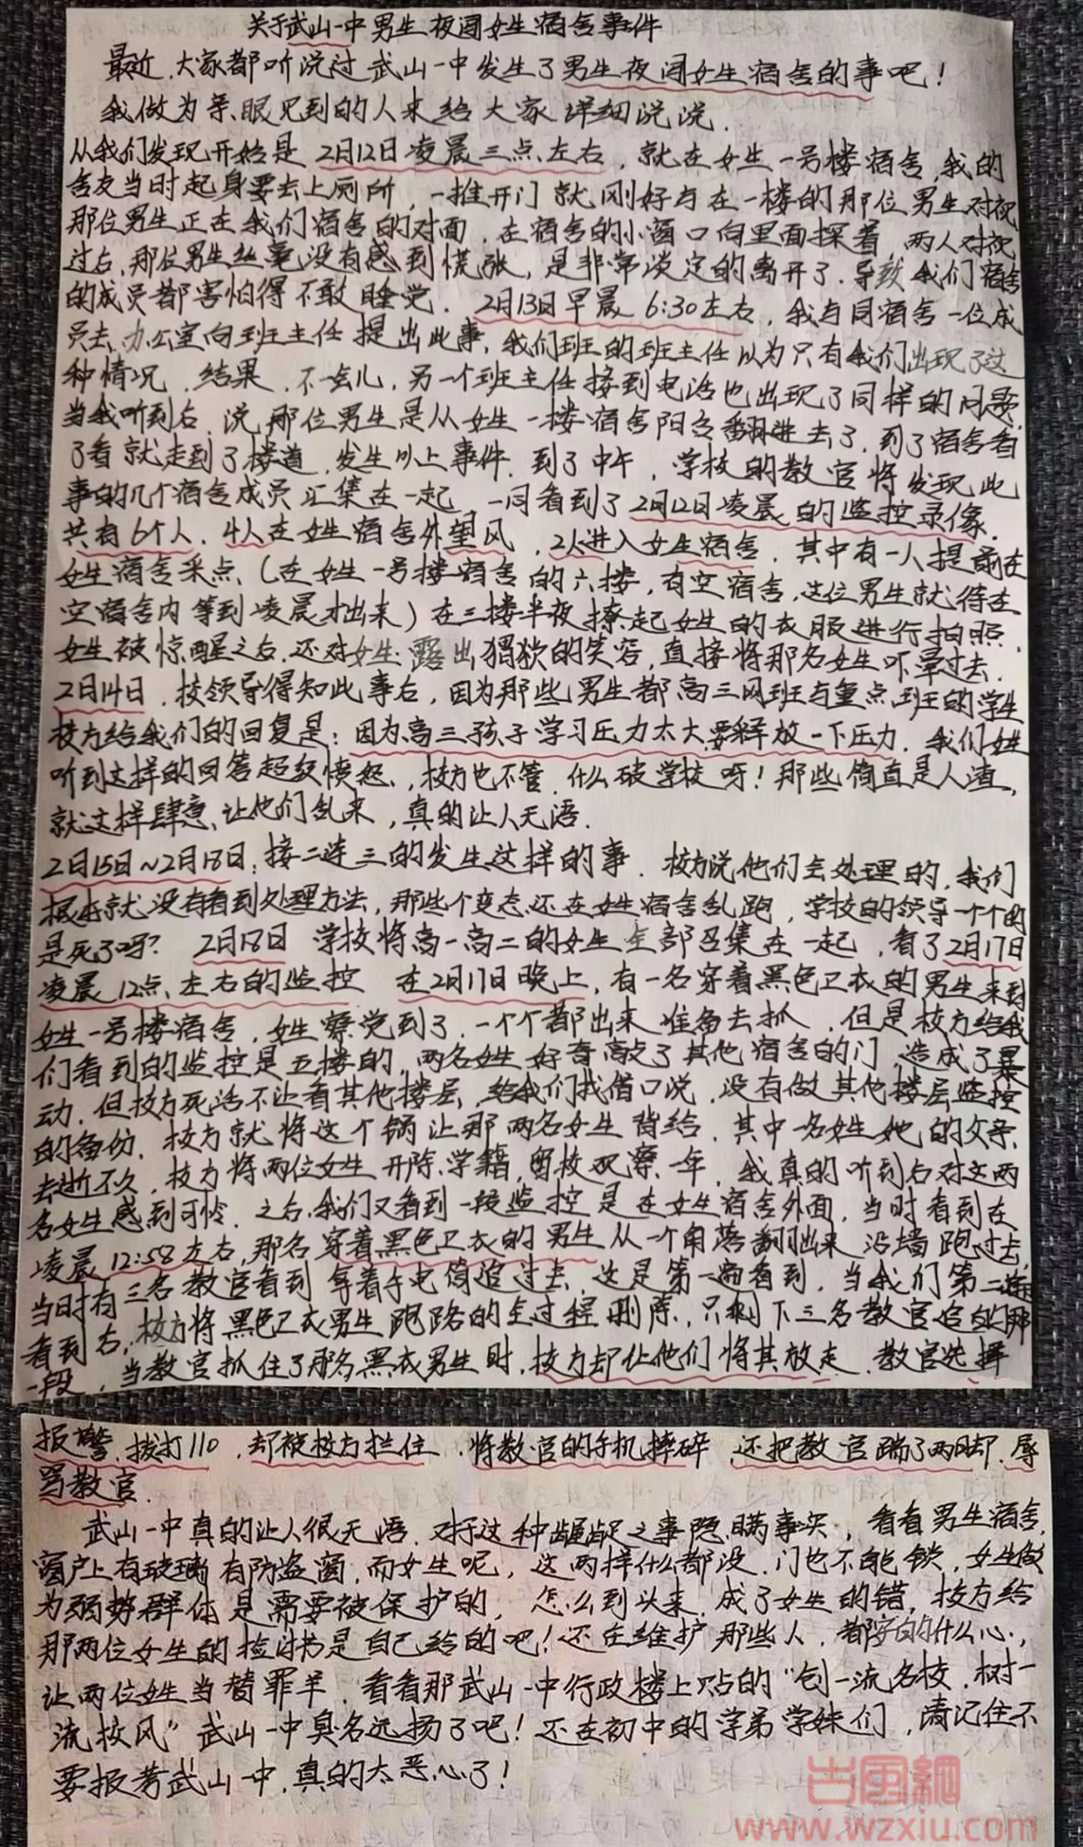 关于武山一中男生夜闯女生宿舍事件
最近,大家都听说过武山一中发生了男生夜闯女生宿舍的事吧!
我做为亲眼见到的人来给大家详细说说.
从我们发现开始是2月12日凌晨三点左右,就在女生一号楼宿舍,我的
舍友当时起身要去上厕所,一推开门就刚好与在一楼的那位男生对视
那位男生正在我们宿舍的对面,在宿舍的小窗口向里面探着,两人对视
过后,那位男生丝毫没有感到慌张,是非常淡定的离开了.导致我们宿舍
的成员都害怕得不敢睡觉.2月13日早晨6:30左右,我与同宿舍一位成
员去办公室向班主任提出此事,我们班的班主任以为只有我们出现了这
种情况,结果,不一会儿,另一个班主任接到电话也出现了同样的问题.
当我听到后,说那位男生是从女生一楼宿舍阳台翻进去了,到了宿舍看
了看就走到了楼道,发生以上事件.到了中午,学校的教官将发现此
事的几个宿舍成员汇集在一起,一同看到了2月12日凌晨的监控录像.
共有6个人,4人在女生宿舍外望风,2人进入女生宿舍,其中有一人提前在
女生宿舍采点(在女生一号楼宿舍的六楼,有空宿舍,这位男生就待在
空宿舍内等到凌晨才出来)在三楼半夜撩起女生的衣服进行拍照.
女生被惊醒之后,还对女生露出猥琐的笑容,直接将那名女生吓晕过去.
2月14日,校领导得知此事后,因为那些男生都高三网班与重点班的学生
校方给我们的回复是:因为高三孩子学习压力太大,要释放一下压力.我们女生
听到这样的回答超级愤怒,校方也不管.什么破学校呀!那些简直是人渣,
就这样肆意让他们乱来,真的让人无语.
2月15日~2月18日:接二连三的发生这样的事.校方说他们会处理的,我们
根本就没有看到处理方法,那些个变态还在女生宿舍乱跑,学校的领导一个个的
是死了吗?2月18日学校将高一高二的女生全部召集在一起,看了2月17日
凌晨12点左右的监控 在2月17日晚上,有一名穿着黑色卫衣的男生来到
女生一号楼宿舍,女生察觉到了,一个个都出来准备去抓,但是校方给我
们看到的监控是五楼的,两名女生好奇敲了其他宿舍的门,造成了暴
动.但校方死活不让看其他楼层,给我们找借口说,没有做其他楼层监控
的备份.校方就将这个锅让那两名女生背给,其中一名女生她的父亲
去逝不久,校方将两位女生开除学籍,留校观察一年,我真的听到后对这两
名女生感到可怜.之后,我们又看到一段监控是在女生宿舍外面,当时看到在
凌晨12:58左右,那名穿着黑色卫衣的男生从一个角落翻出来沿墙跑过去,
当时有三名教官看到拿着手电筒追过去,这是第一遍看到,当我们第二遍
看到后,校方将黑色卫衣男生跑路的全过程删除,只剩下三名教官追的那
一段,当教官抓住了那名黑衣男生时,校方却让他们将其放走.教官选择
报警,拨打110,却被校方拦住,将教官的手机摔碎,还把教官踹了两脚,辱
骂教官.
武山一中真的让人很无语,对于这种龌龊之事隐瞒事实,看看男生宿舍,
窗户上有玻璃有防盗窗,而女生呢,这两样什么都没,门也不能锁,女生做
为弱势群体是需要被保护的,怎么到头来,成了女生的错,校方给
那两位女生的检讨书是自己给的吧!还在维护那些人,都安的什么心,
让两位女生当替罪羊,看看那武山一中行政楼上贴的"创一流名校,树一
流校风"武山一中臭名远扬了吧!还在初中的学弟学妹们,请记住不
要报考武山一中,真的太恶心了!
古风网
www.wzxiu.com